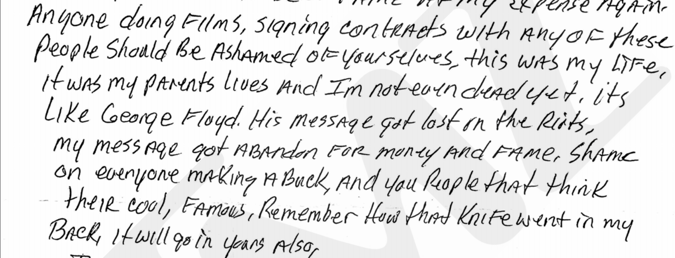 expense Again.
Anyone doing Films, signing contracts with any of these
People Should Be Ashamed of yourselves, this was my Life,
it was my parents lives and Im not even dead yet. its
Like George Floyd. His message got lost in the Riots,
my message got ABANDON FOR money AND FAME. Shame
on everyone making A Buck, AND you People that think
their cool, FAMOUS, Remember How that Knife went in my
BACK, it will go in yours Also,